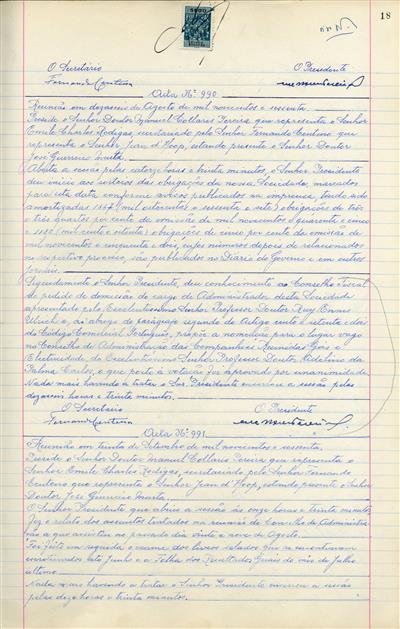 18
O Secretário O Presidente
Acta Nº. 990
Reunião em dezasseis de Agosto de mil novecentos e sessenta.
Preside o Senhor Doutor Manuel Collares Pereira que representa o Senhor
Emile Charles Rodigas, secretariado pelo Senhor Fernando Centeno que
representa o Senhor Jean d'Hoop, estando presente o Senhor Doutor
José Guerreiro Murta.
Aberta a sessão pelas catorze horas e trinta minutos, o Senhor Presidente
deu início aos sorteios das obrigações da nossa Sociedade, marcados
para esta data conforme avisos publicados na imprensa, tendo sido
amortizadas 1167 (mil cento e sessenta e sete) obrigações de três
e três quartos por cento da emissão de mil novecentos e quarenta e cinco
e 1180 (mil cento e oitenta) obrigações de cinco por cento da emissão de
mil novecentos e cinquenta e dois, cujos números depois de relacionados
no respectivo processo, são publicados no Diário do Governo e em outros
jornais.
Seguidamente o Senhor Presidente, deu conhecimento ao Conselho Fiscal
do pedido de demissão do cargo de Administrador desta Sociedade
apresentado pelo Excelentíssimo Senhor Professor Doutor Ruy Ennes
Ulrich e, ao abrigo do parágrafo segundo do Artigo cento e setenta e dois
do Código Comercial Português, propôs a nomeação para o lugar vago
no Conselho de Administração das Companhias Reunidas Gaz e
Electricidade do Excelentíssimo Senhor Professor Doutor Adelino da
Palma Carlos, o que posto à votação foi aprovado por unanimidade.
Nada mais havendo a tratar o Snr. Presidente encerrou a sessão pelas
dezasseis horas e trinta minutos.
O Secretário O Presidente
Acta Nº. 991
Reunião em trinta de Setembro de mil novecentos e sessenta.
Preside o Senhor Doutor Manuel Collares Pereira que representa o
Senhor Emile Charles Rodigas, secretariado pelo Senhor Fernando
Centeno que representa o Senhor Jean d'Hoop, estando presente o Senhor
Doutor José Guerreiro Murta.
O Senhor Presidente que abriu a sessão às onze horas e trinta minutos,
fez o relato dos assuntos tratados na reunião do Conselho de Administra-
ção a que assistiu no passado dia vinte e nove de Agosto.
Foi feito em seguida o exame dos livros selados que se encontravam
escriturados até Junho e a Folha dos Resultados Gerais do mês de Julho
último.
Nada mais havendo a tratar o Senhor Presidente encerrou a sessão
pelas doze horas e trinta minutos.